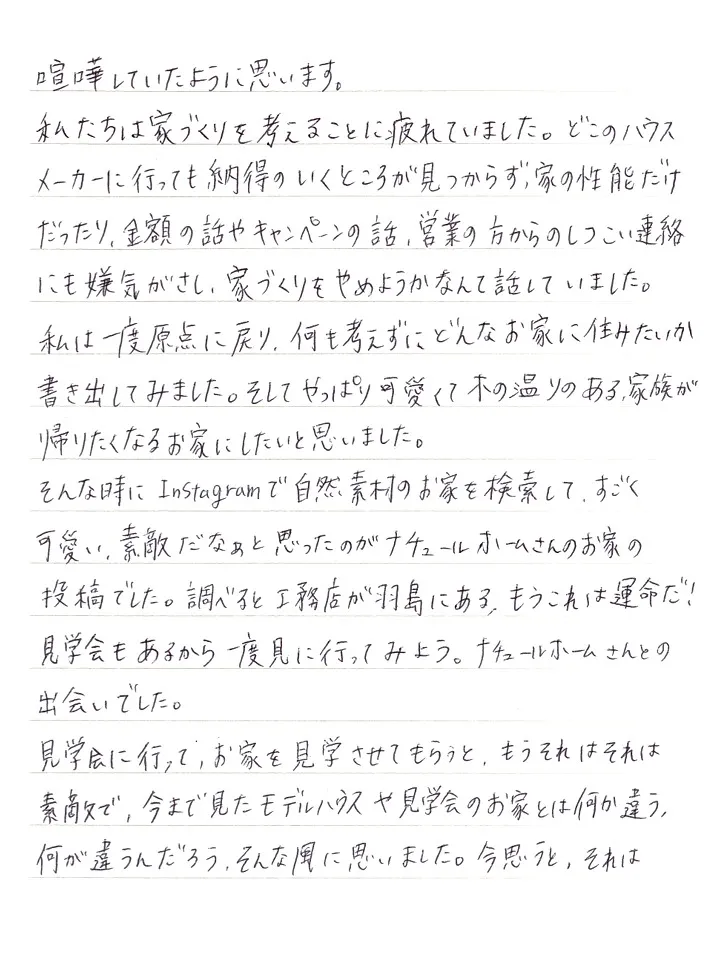 喧嘩していたように思います。
私たちは家づくりを考えることに疲れていました。どこのハウス
メーカーに行っても納得のいくところが見つからず、家の性能だけ
だったり、金額の話やキャンペーンの話、営業の方からのしつこい連絡
にも嫌気がさし、家づくりをやめようかなんて話していました。
私は一度原点に戻り、何も考えずにどんなお家に住みたいか
書き出してみました。そしてやっぱり可愛くて木の温りのある、家族が
帰りたくなるお家にしたいと思いました。
そんな時にInstagramで自然素材のお家を検索して、すごく
可愛い、素敵だなぁと思ったのがナチュールホームさんのお家の
投稿でした。調べると工務店が羽島にある、もうこれは運命だ!
見学会もあるから一度見に行ってみよう。ナチュールホームさんとの
出会いでした。
見学会に行って、お家を見学させてもらうと、もうそれはそれは
素敵で、今まで見たモデルハウスや見学会のお家とは何か違う、
何が違うんだろう、そんな風に思いました。今思うと、それは